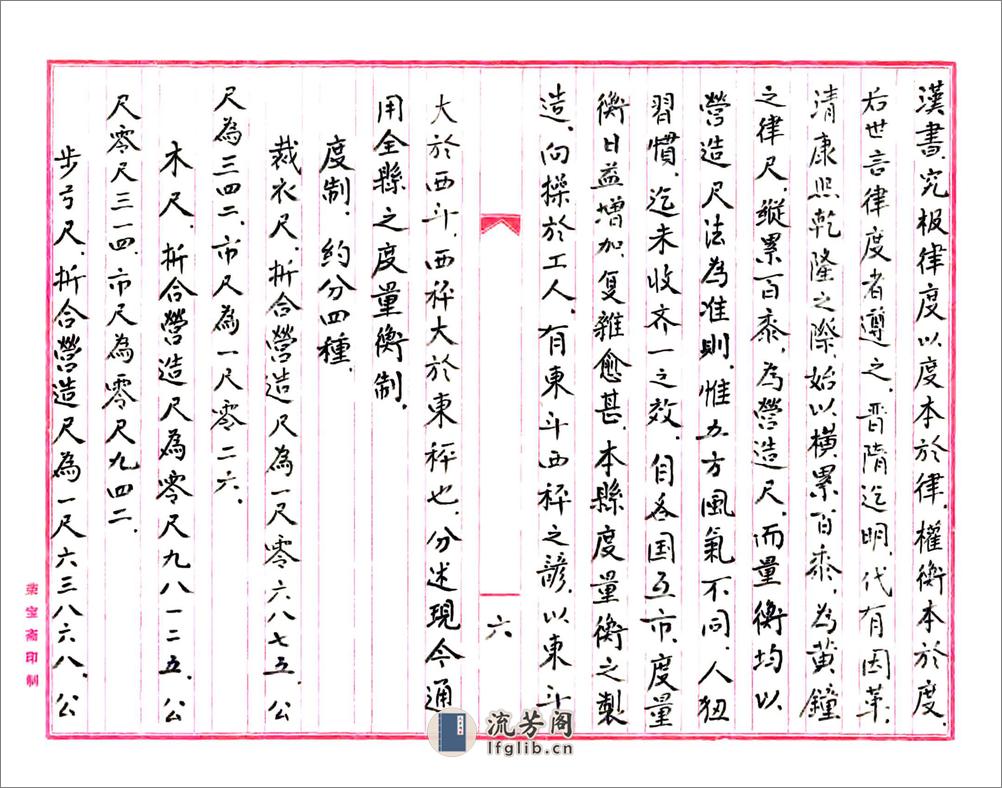 漢書究极律度以度本於律.權衡本於度.
后世言律度者遵之.晋隋迄明.代有因革.
清康熙乾隆之際.始以横累百黍.為黄鐘
之律尺.縱累百黍.為營造尺.而量衡均以
營造尺法為准則.惟五方風氣不同.人狃
習慣.迄未收齐一之效.自各国互市.度量
衡日益增加.复雜愈甚.本縣度量衡之製
造.向操於工人.有東斗西秤之諺.以東斗
六
大於西斗.西秤大於東秤也.分述現今通
用全縣之度量衡制.
度制.約分四種.
裁衣尺.折合營造尺為一尺零六八七五.公
尺為三四二.市尺為一尺零二六.
木尺.折合營造尺為零尺九八一二五.公
尺零尺三一四.市尺為零尺九四二.
步弓尺.折合營造尺為一尺六三八六八.公
荣宝斋印制
流芳阁
lfglib.cn